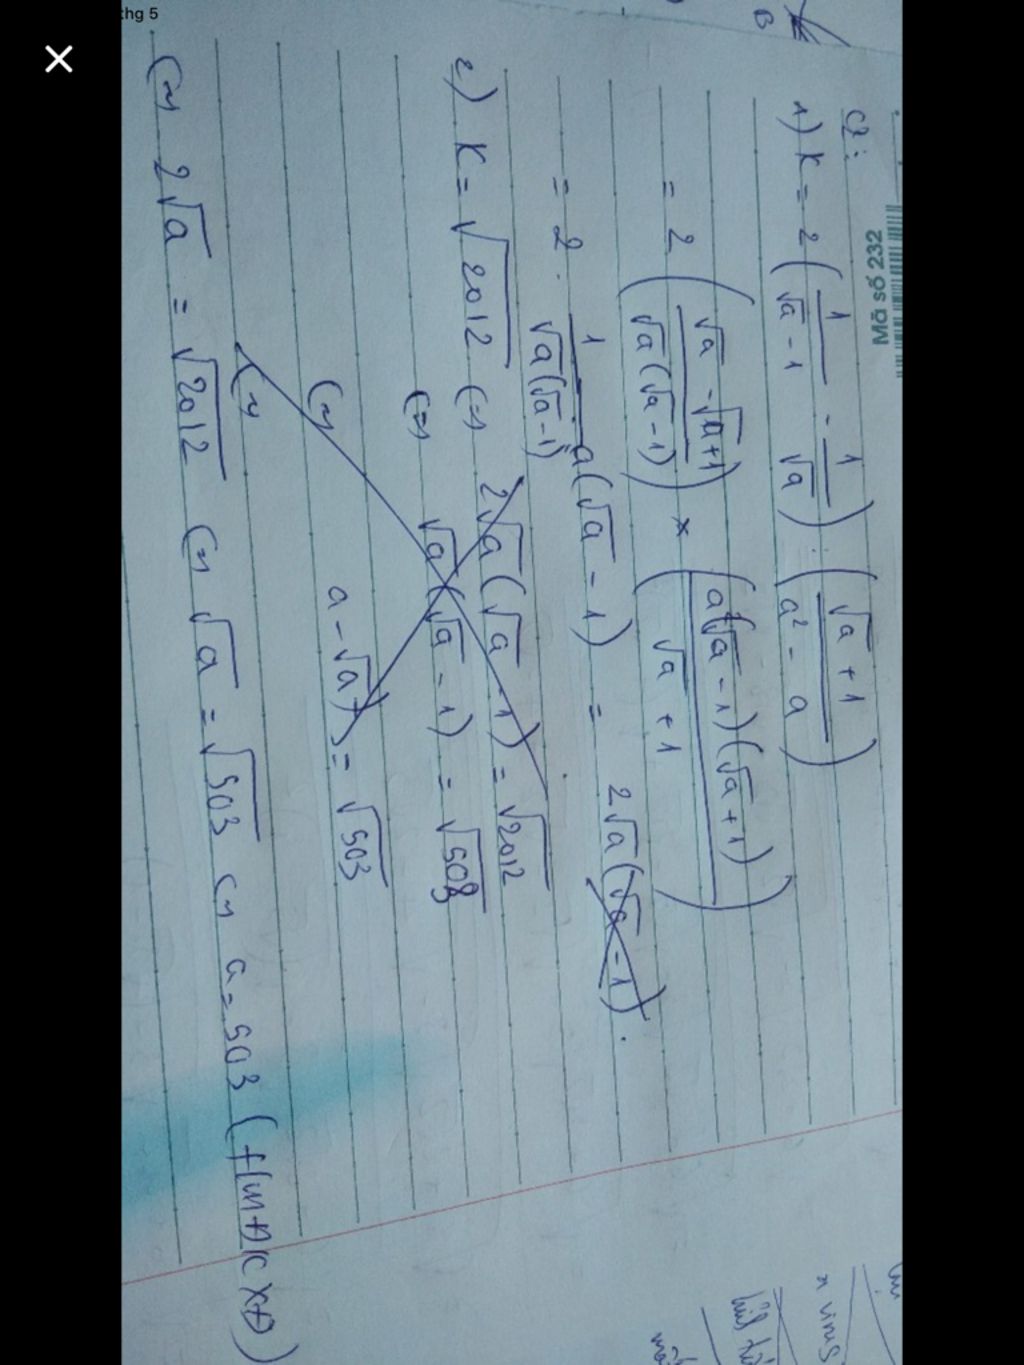 thg 5
B
Mã số 232
C2:
1) K = 2 ( 1/(√a - 1) - 1/√a ) : ( (√a + 1)/(a² - a) )
= 2 ( (√a - √a + 1)/(√a(√a - 1)) ) × ( (a(√a - 1)(√a + 1))/(√a + 1) )
= 2 . 1/(√a(√a - 1)) a(√a - 1) = 2√a(√a - 1).
2) K = √2012 (=) 2√a(√a - 1) = √2012
(=) √a(√a - 1) = √503
(=) a - √a) = √503
(=)
(=) 2√a = √2012 (=) √a = √503 (=) a = 503 (t/m ĐK XĐ)
x virus